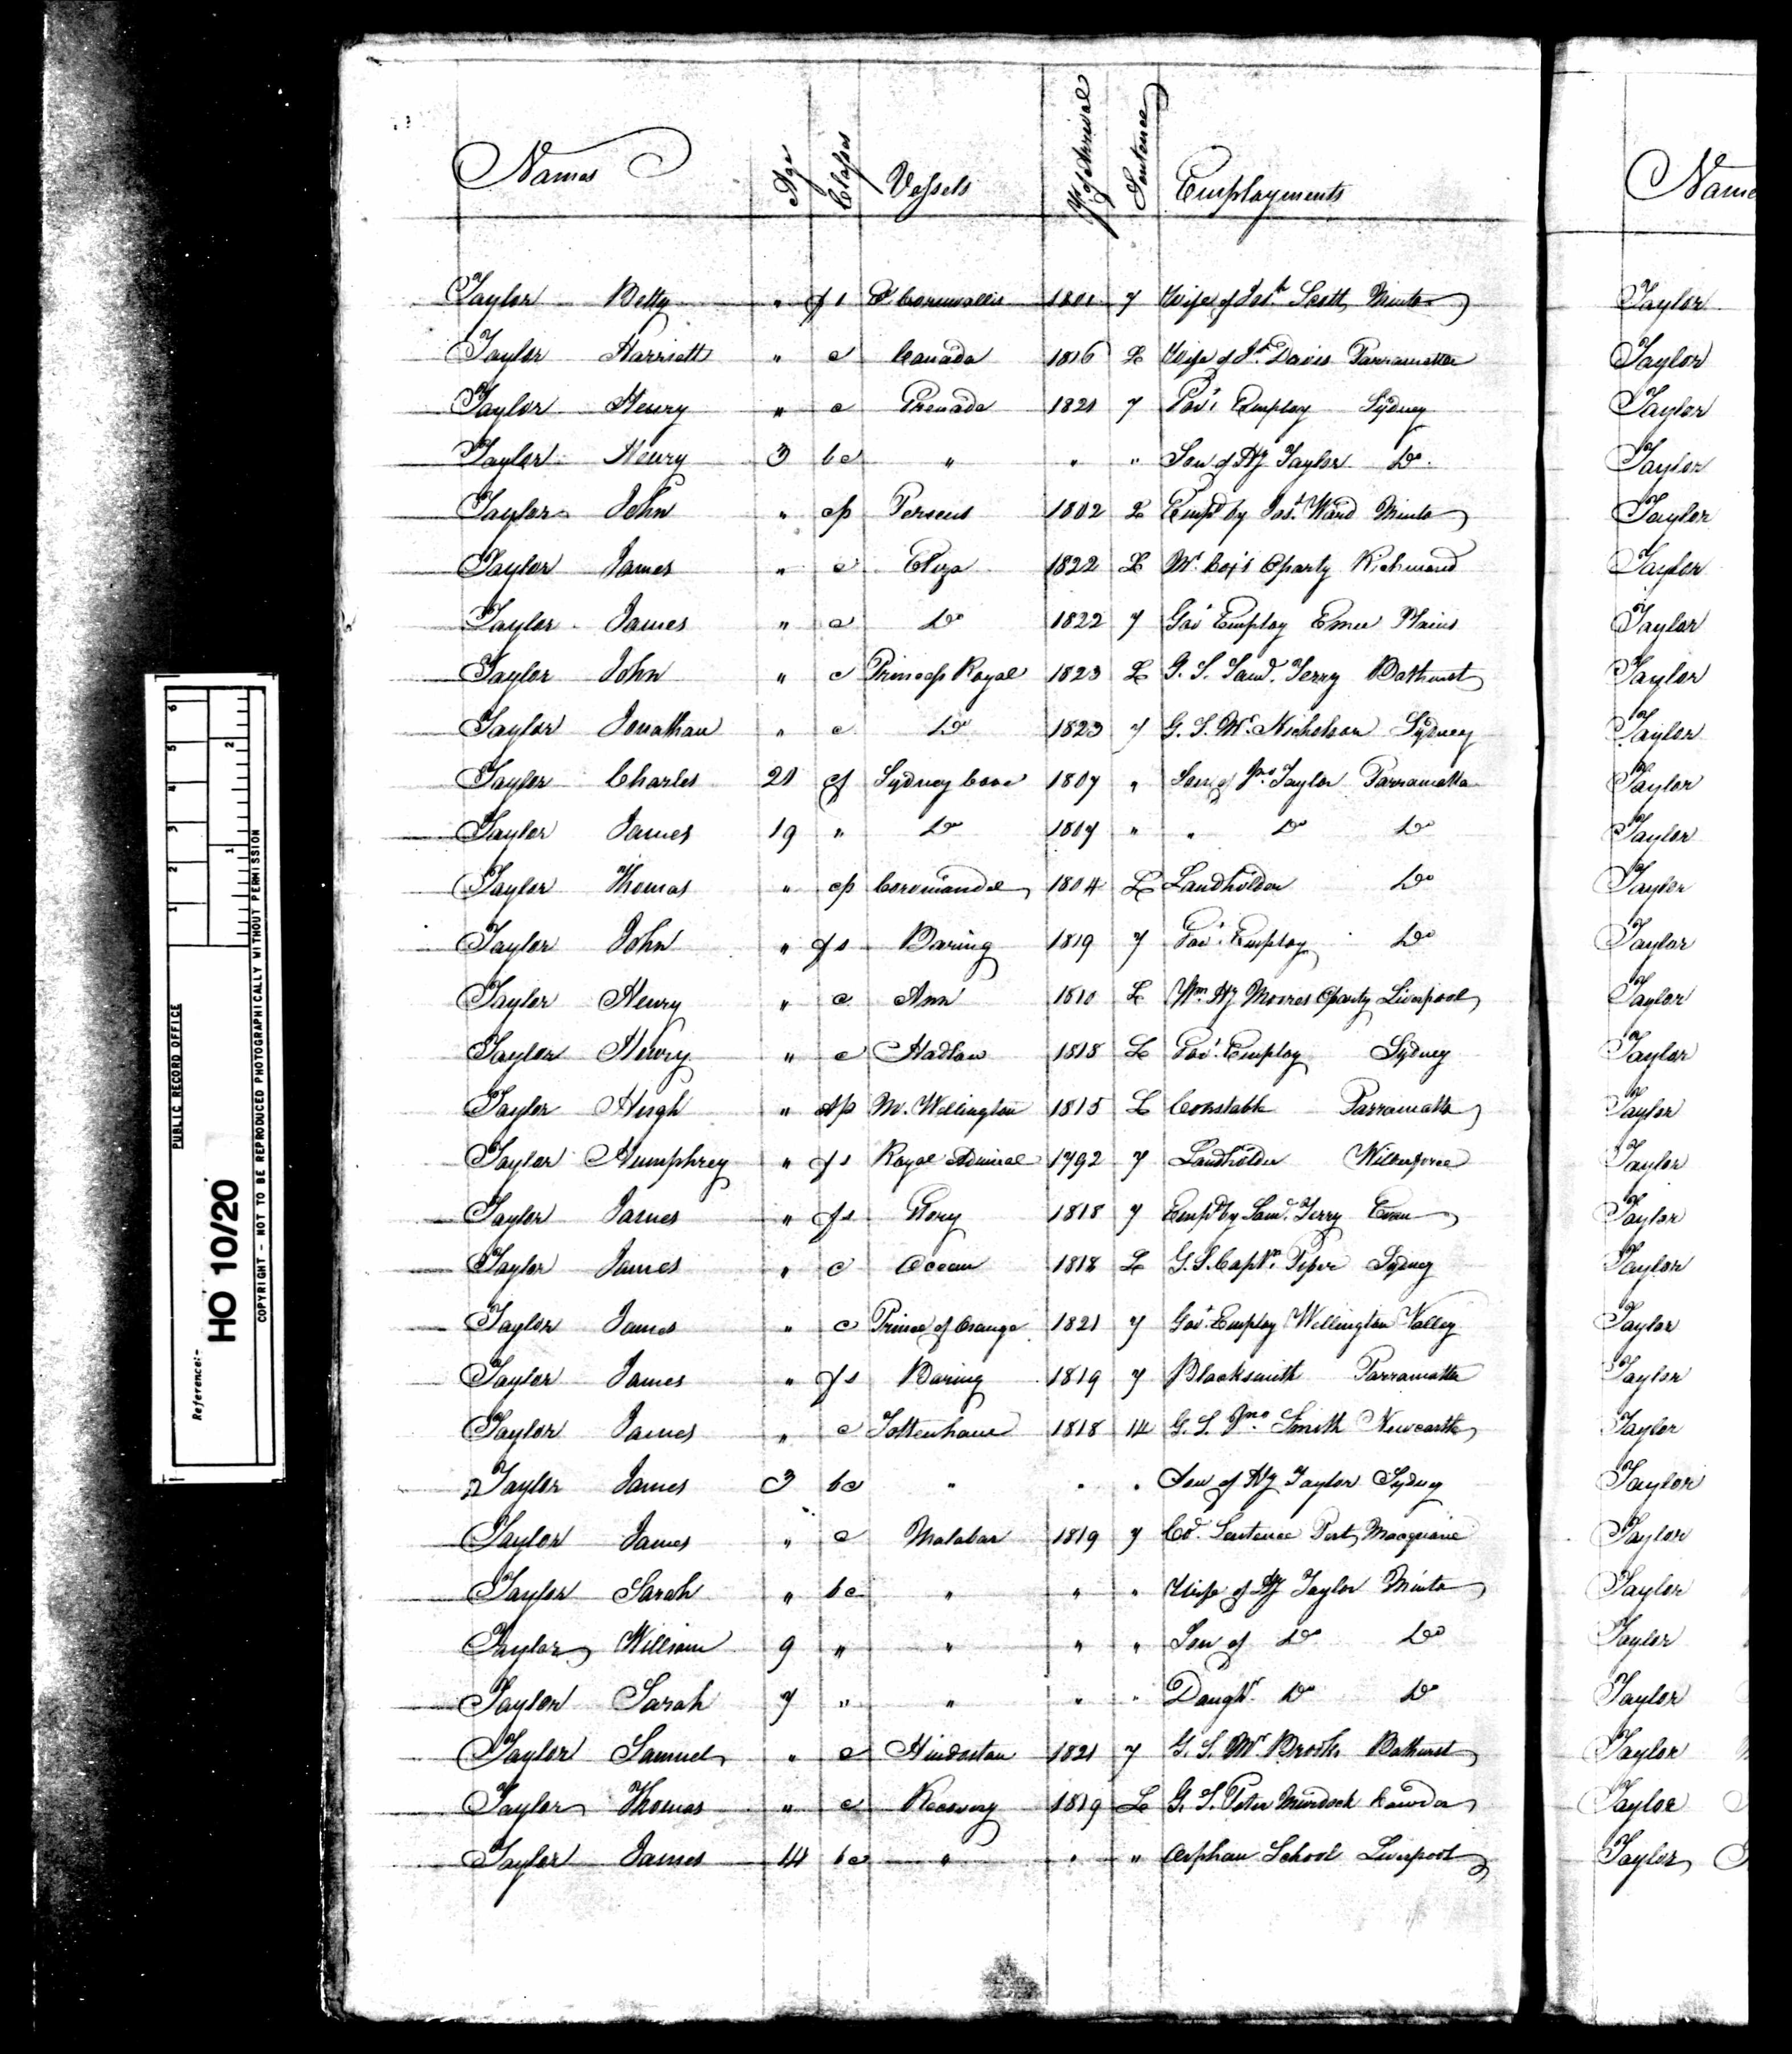 Names Age Classes Vessels Yr of Arrival Sentence Employments
Taylor Betty " fs E Cornwallis 1801 7 Wife of Jas. Scott Minto
Taylor Harriett " c Canada 1816 L Wife of Jn Davis Parramatta
Taylor Henry " c Grenada 1821 7 Gov't Employ Sydney
Taylor Henry 3 bc " " " Son of Hy Taylor Do.
Taylor John " cp Perseus 1802 L Empd by Jas. Ward Minto
Taylor James " c Eliza 1822 L Mr Cox's Cparty Richmond
Taylor James " c Do 1822 7 Gov Employ Emu Plains
Taylor John " c Princess Royal 1823 L G. S. Saml. Terry Bathurst
Taylor Jonathan " c Do 1823 7 G. S. Mr. Nicholson Sydney
Taylor Charles 21 cf Sydney Cove 1807 " Son of Jno Taylor Parramatta
Taylor James 19 " Do 1807 " " Do Do
Taylor Thomas " cp Coromandel 1804 L Landholder Do
Taylor John " fs Baring 1819 7 Gov't Employ Do
Taylor Henry " c Ann 1810 L Wm. Hy Moores Cparty Liverpool
Taylor Henry " c Hadlow 1818 L Gov't Employ Sydney
Taylor Hugh " tp M. Wellington 1815 L Constable Parramatta
Taylor Humphrey " fs Royal Admiral 1792 7 Landholder Wilberforce
Taylor James " fs Glory 1818 7 Empd by Saml. Terry Evan
Taylor James " c Ocean 1818 L G. S. Captn. Piper Sydney
Taylor James " c Prince of Orange 1821 7 Gov't Employ Wellington Valley
Taylor James " fs Baring 1819 7 Blacksmith Parramatta
Taylor James " c Tottenham 1818 14 G. S. Jno Smith Newcastle
Taylor James 3 bc " " " Son of Hy Taylor Sydney
Taylor James " c Malabar 1819 7 Co. Sentence Port Macquarie
Taylor Sarah " bc " " " Wife of Hy Taylor Minto
Taylor William 9 " " " " Son of Do Do
Taylor Sarah 7 " " " " Daught. Do Do
Taylor Samuel " c Hindostan 1821 7 G. S. Mr Brooks Bathurst
Taylor Thomas " c Recovery 1819 L G. S. Peter Murdoch Cawdor
Taylor James 14 bc " " " Orphan School Liverpool
Name
Taylor
Taylor
Taylor
Taylor
Taylor
Taylor
Taylor
Taylor
Taylor
Taylor
Taylor
Taylor
Taylor
Taylor
Taylor
Taylor
Taylor
Taylor
Taylor
Taylor
Taylor
Taylor
Taylor
Taylor
Taylor
Taylor
Taylor
Taylor
Taylor
Taylor
PUBLIC RECORD OFFICE
1 2 3 4 5 6
1 2
Reference:-
HO 10/20
COPYRIGHT - NOT TO BE REPRODUCED PHOTOGRAPHICALLY WITHOUT PERMISSION